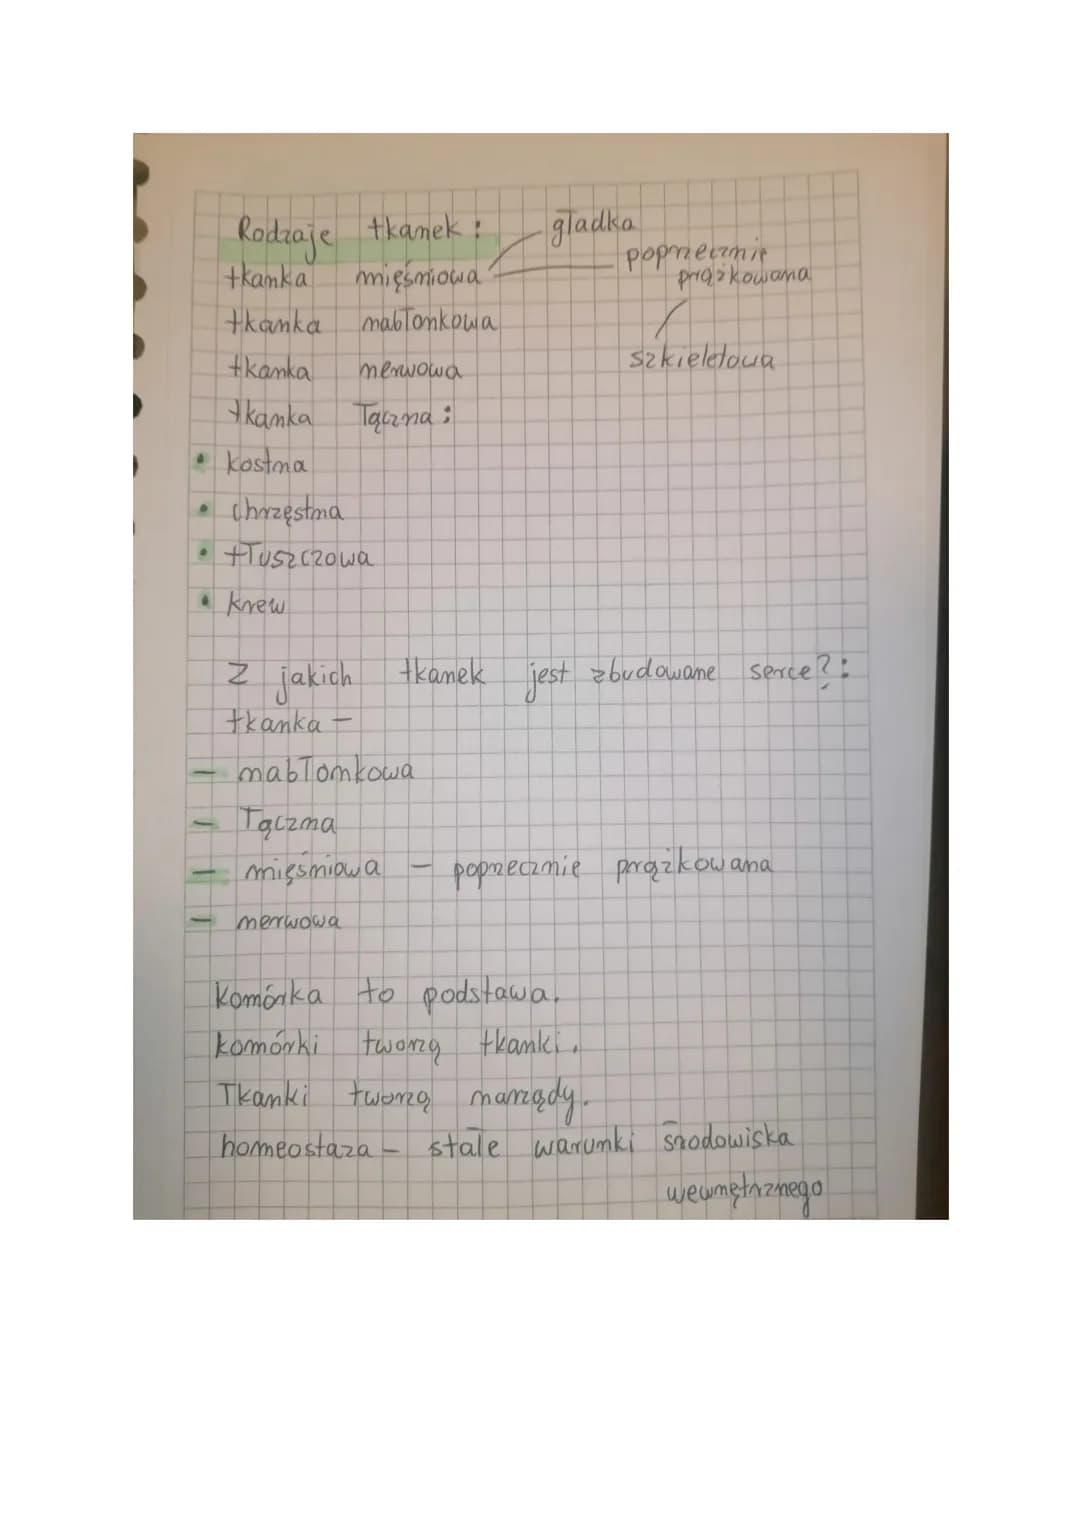 Rodzaje tkanek:
gładka
poprzecznie
prążkowana
tkanka mięśniowa
tkanka nabłonkowa
szkieletowa
tkanka nerwowa
tkanka łączna:
• kostna
• chrzęstna
• tłuszczowa
• krew
Z jakich tkanek jest zbudowane serce?:
tkanka –
– nabłonkowa
– łączna
– mięśniowa – poprzecznie prążkowana
– nerwowa
Komórka to podstawa.
komórki tworzą tkanki.
Tkanki tworzą narządy.
homeostaza – stałe warunki środowiska
wewnętrznego